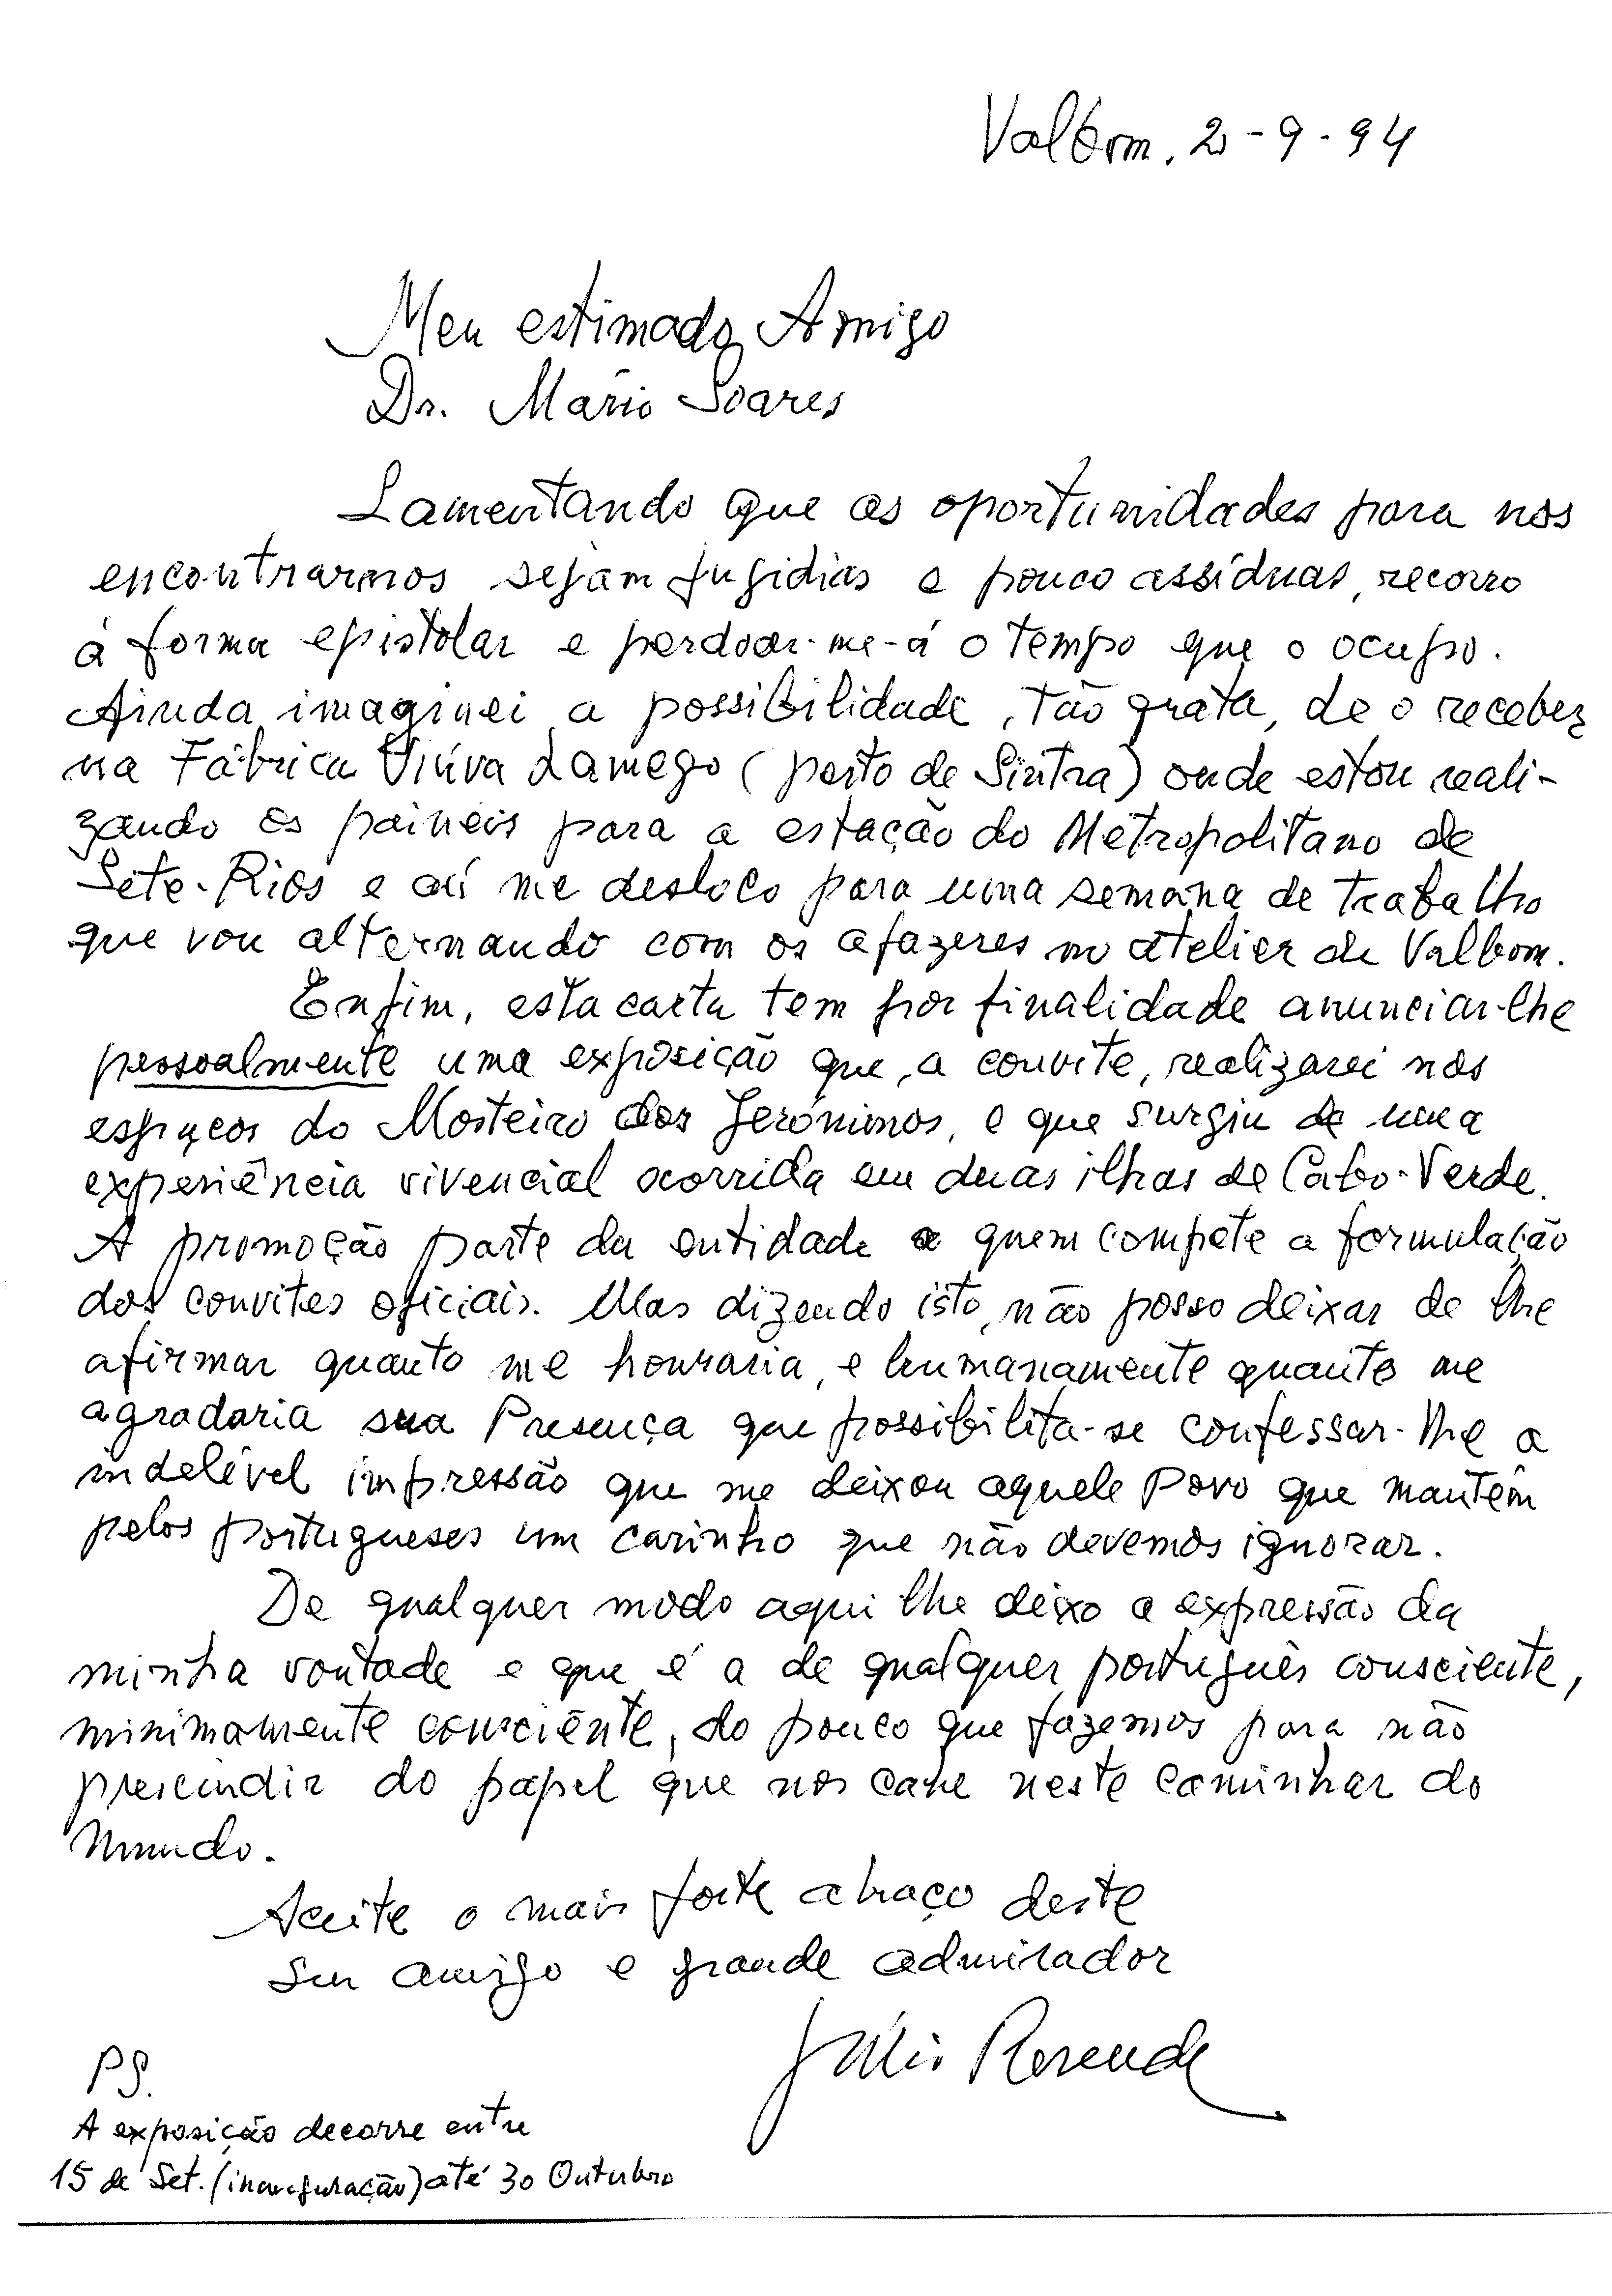 Valbom, 2-9-94
Meu estimado Amigo
Dr. Mário Soares
Lamentando que as oportunidades para nos
encontrarmos sejam fugidias e pouco assíduas, recorro
à forma epistolar e perdoar-me-á o tempo que o ocupo.
Ainda imaginei a possibilidade, tão grata, de o receber
na Fábrica Viúva Lamego (perto de Sintra) onde estou reali-
zando os paineis para a estação do Metropolitano de
Sete-Rios e aí me desloco para uma semana de trabalho
que vou alternando com os afazeres no atelier de Valbom.
Enfim, esta carta tem por finalidade anunciar-lhe
pessoalmente uma exposição que, a convite, realizarei nos
espaços do Mosteiro dos Jerónimos, e que surgiu de uma
experiência vivencial ocorrida em duas ilhas de Cabo-Verde.
A promoção parte da entidade a quem compete a formulação
dos convites oficiais. Mas dizendo isto, não posso deixar de lhe
afirmar quanto me honraria, e humanamente quanto me
agradaria sua Presença que possibilita-se confessar-lhe a
indelével impressão que me deixou aquele Povo que mantêm
pelos portugueses um carinho que não devemos ignorar.
De qualquer modo aqui lhe deixo a expressão da
minha vontade e que é a de qualquer português consciente,
minimamente consciênte, do pouco que fazemos para não
prescindir do papel que nos cabe neste caminhar do
Mundo.
Aceite o mais forte abraço deste
seu amigo e grande admirador
Júlio Resende
PS.
A exposição decorre entre
15 de Set. (inauguração) até 30 Outubro